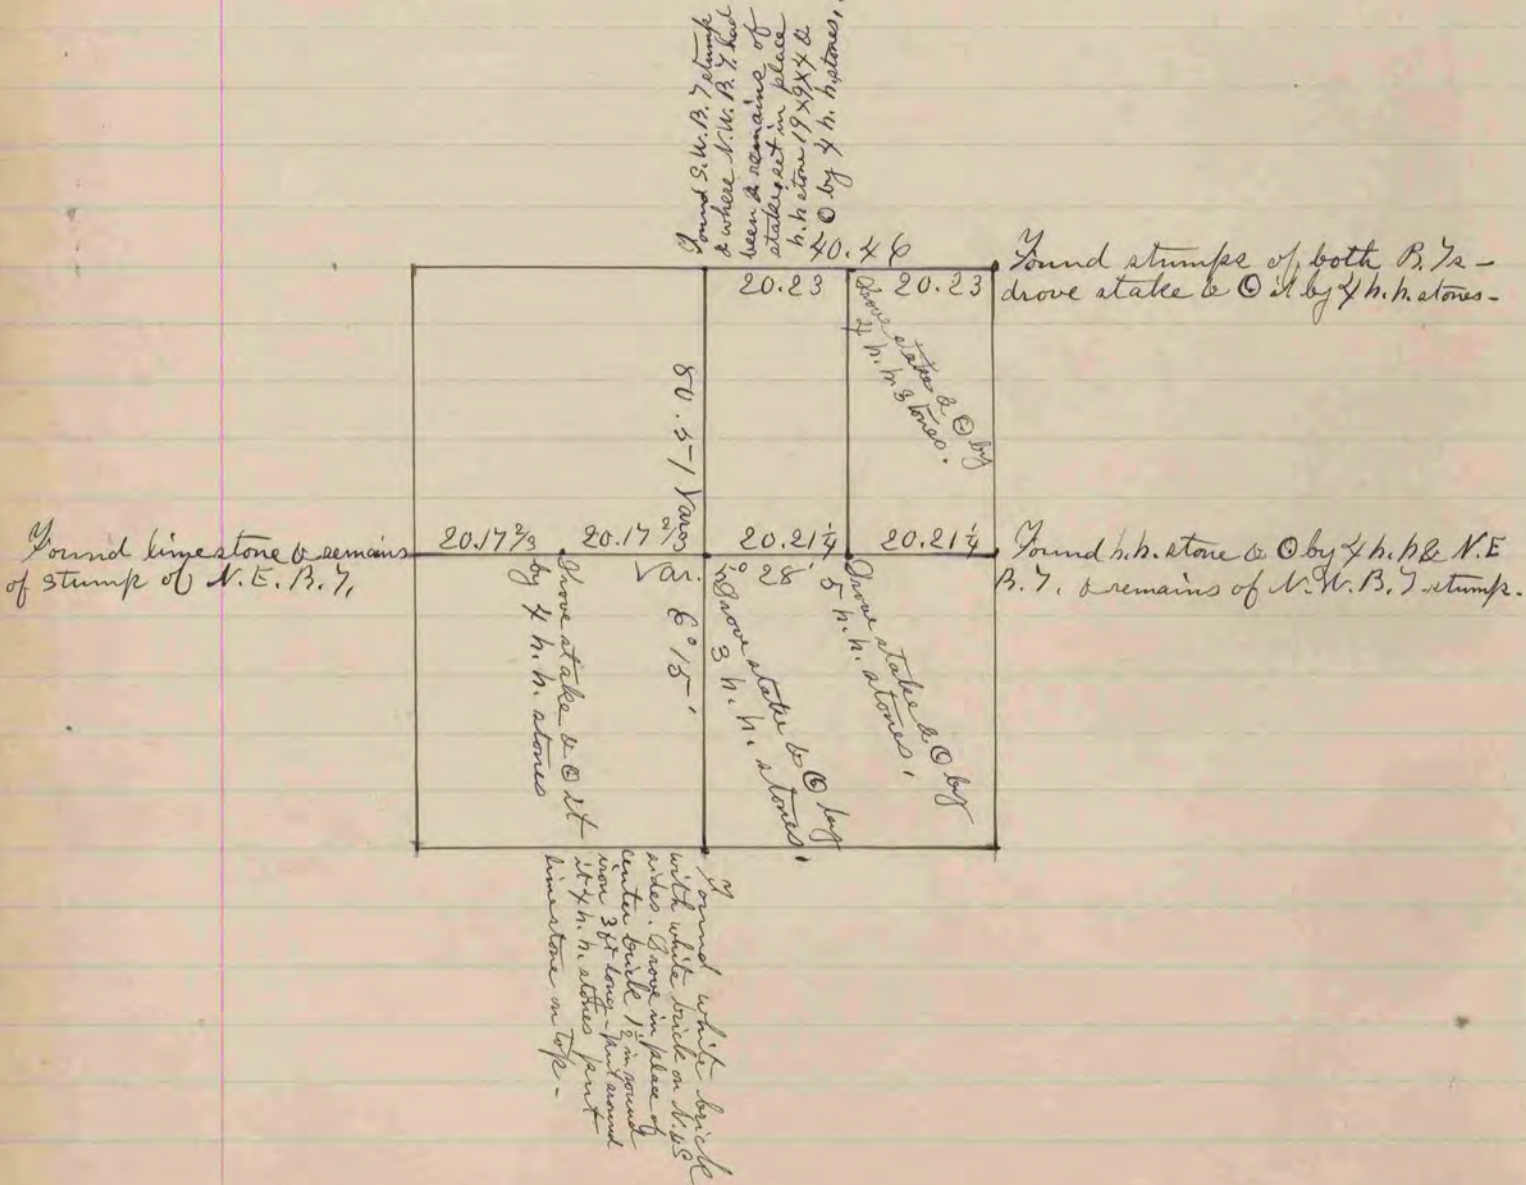 Found S.W. B.T. stump
& where N.W. B.T. had
been & remains of
stake, set in place
h.h. stone 19x9x4 &
⊙ by 4 h.h. stones.
40.46
20.23
20.23
Found stumps of both B.Ts -
drove stake & ⊙ it by 4 h.h. stones -
Drove stake & ⊙ by
4 h.h. stones.
80.51 Var.
6° 15'
Found limestone & remains
of stump of N.E. B.T.
20.17 2/3
20.17 2/3
20.21 1/4
20.21 1/4
Var. 5° 28'
Found h.h. stone & ⊙ by 4 h.h. & N.E
B.T. & remains of N.W. B.T. stump.
Drove stake & ⊙ it
by 4 h.h. stones
Drove stake & ⊙ by
3 h.h. stones.
Drove stake & ⊙ by
5 h.h. stones.
Found white brick
with white brick on N. & S
sides. Drove in place of
center brick 1 1/2 in round
iron 3 ft long - put around
it 4 h.h. stones put
limestone on top -